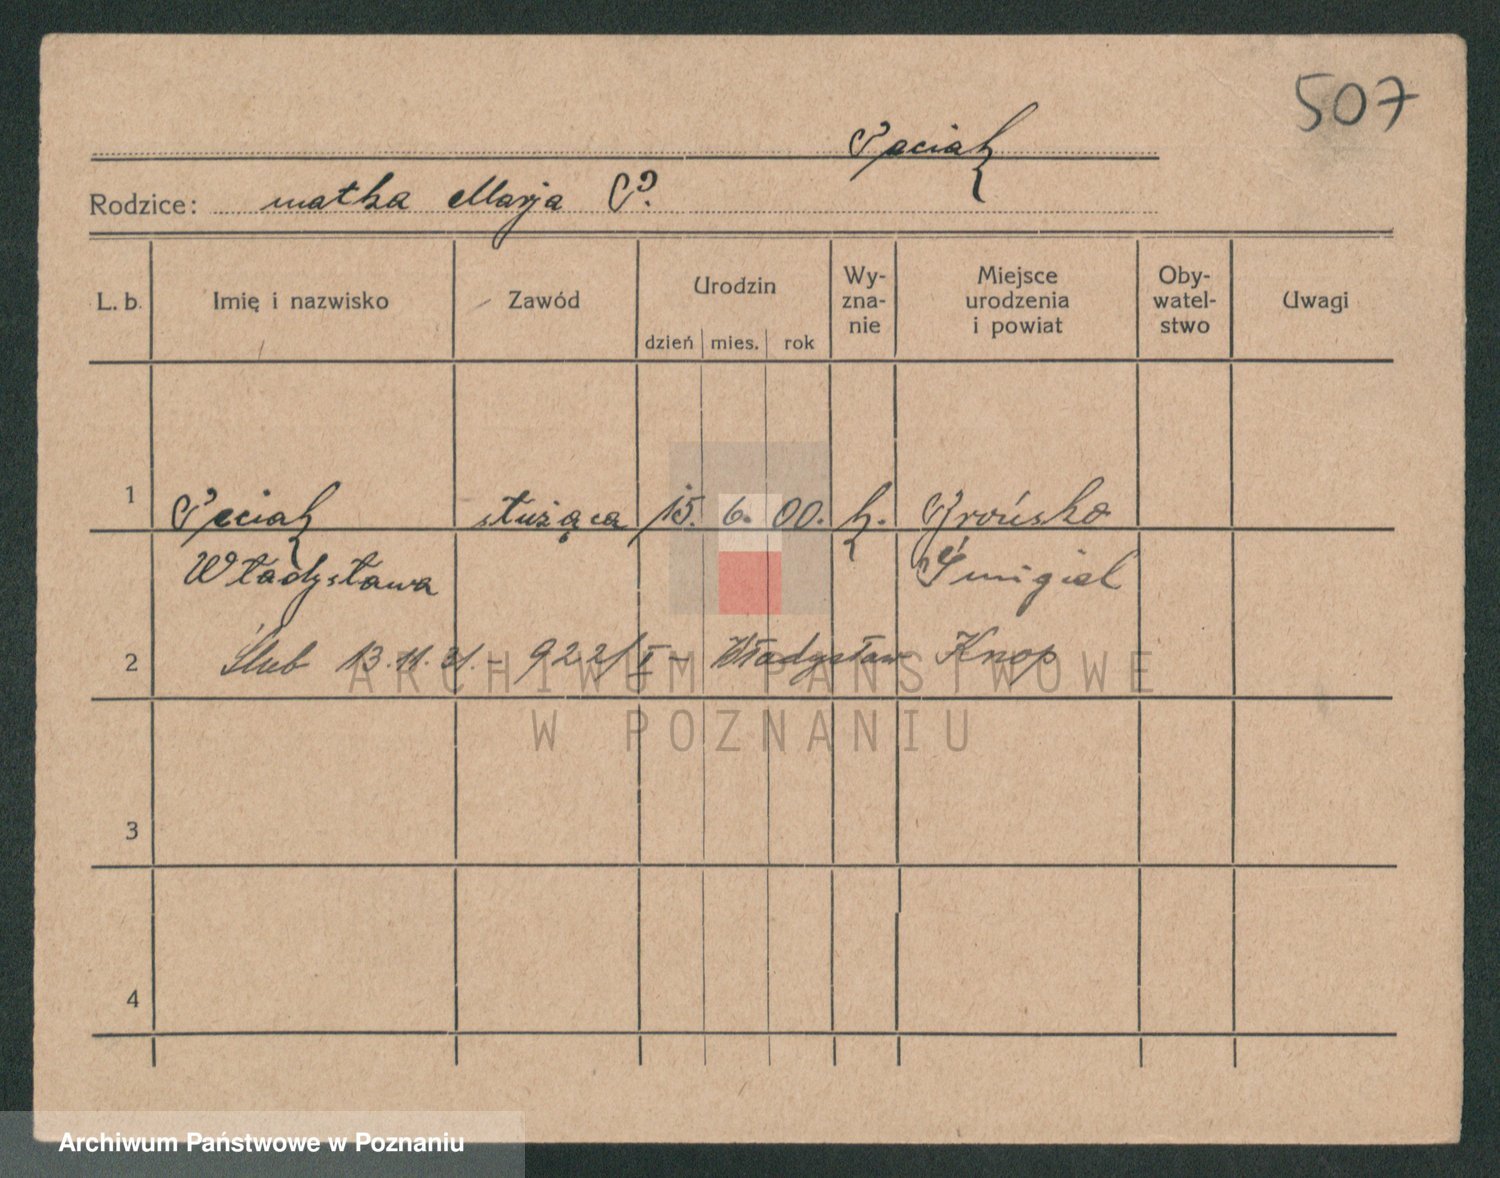 507
Peciak
Rodzice: matka Marja P.
L. b.
Imię i nazwisko
Zawód
Urodzin
dzień mies. rok
Wy-
zna-
nie
Miejsce
urodzenia
i powiat
Oby-
watel-
stwo
Uwagi
1 Peciak służąca 15. 6. 00. k. Brońsko
Władysława Śmigiel
2 Ślub 13.11.31. - 922/I - Władysław Knop
3
4
ARCHIWUM PAŃSTWOWE
W POZNANIU
Archiwum Państwowe w Poznaniu